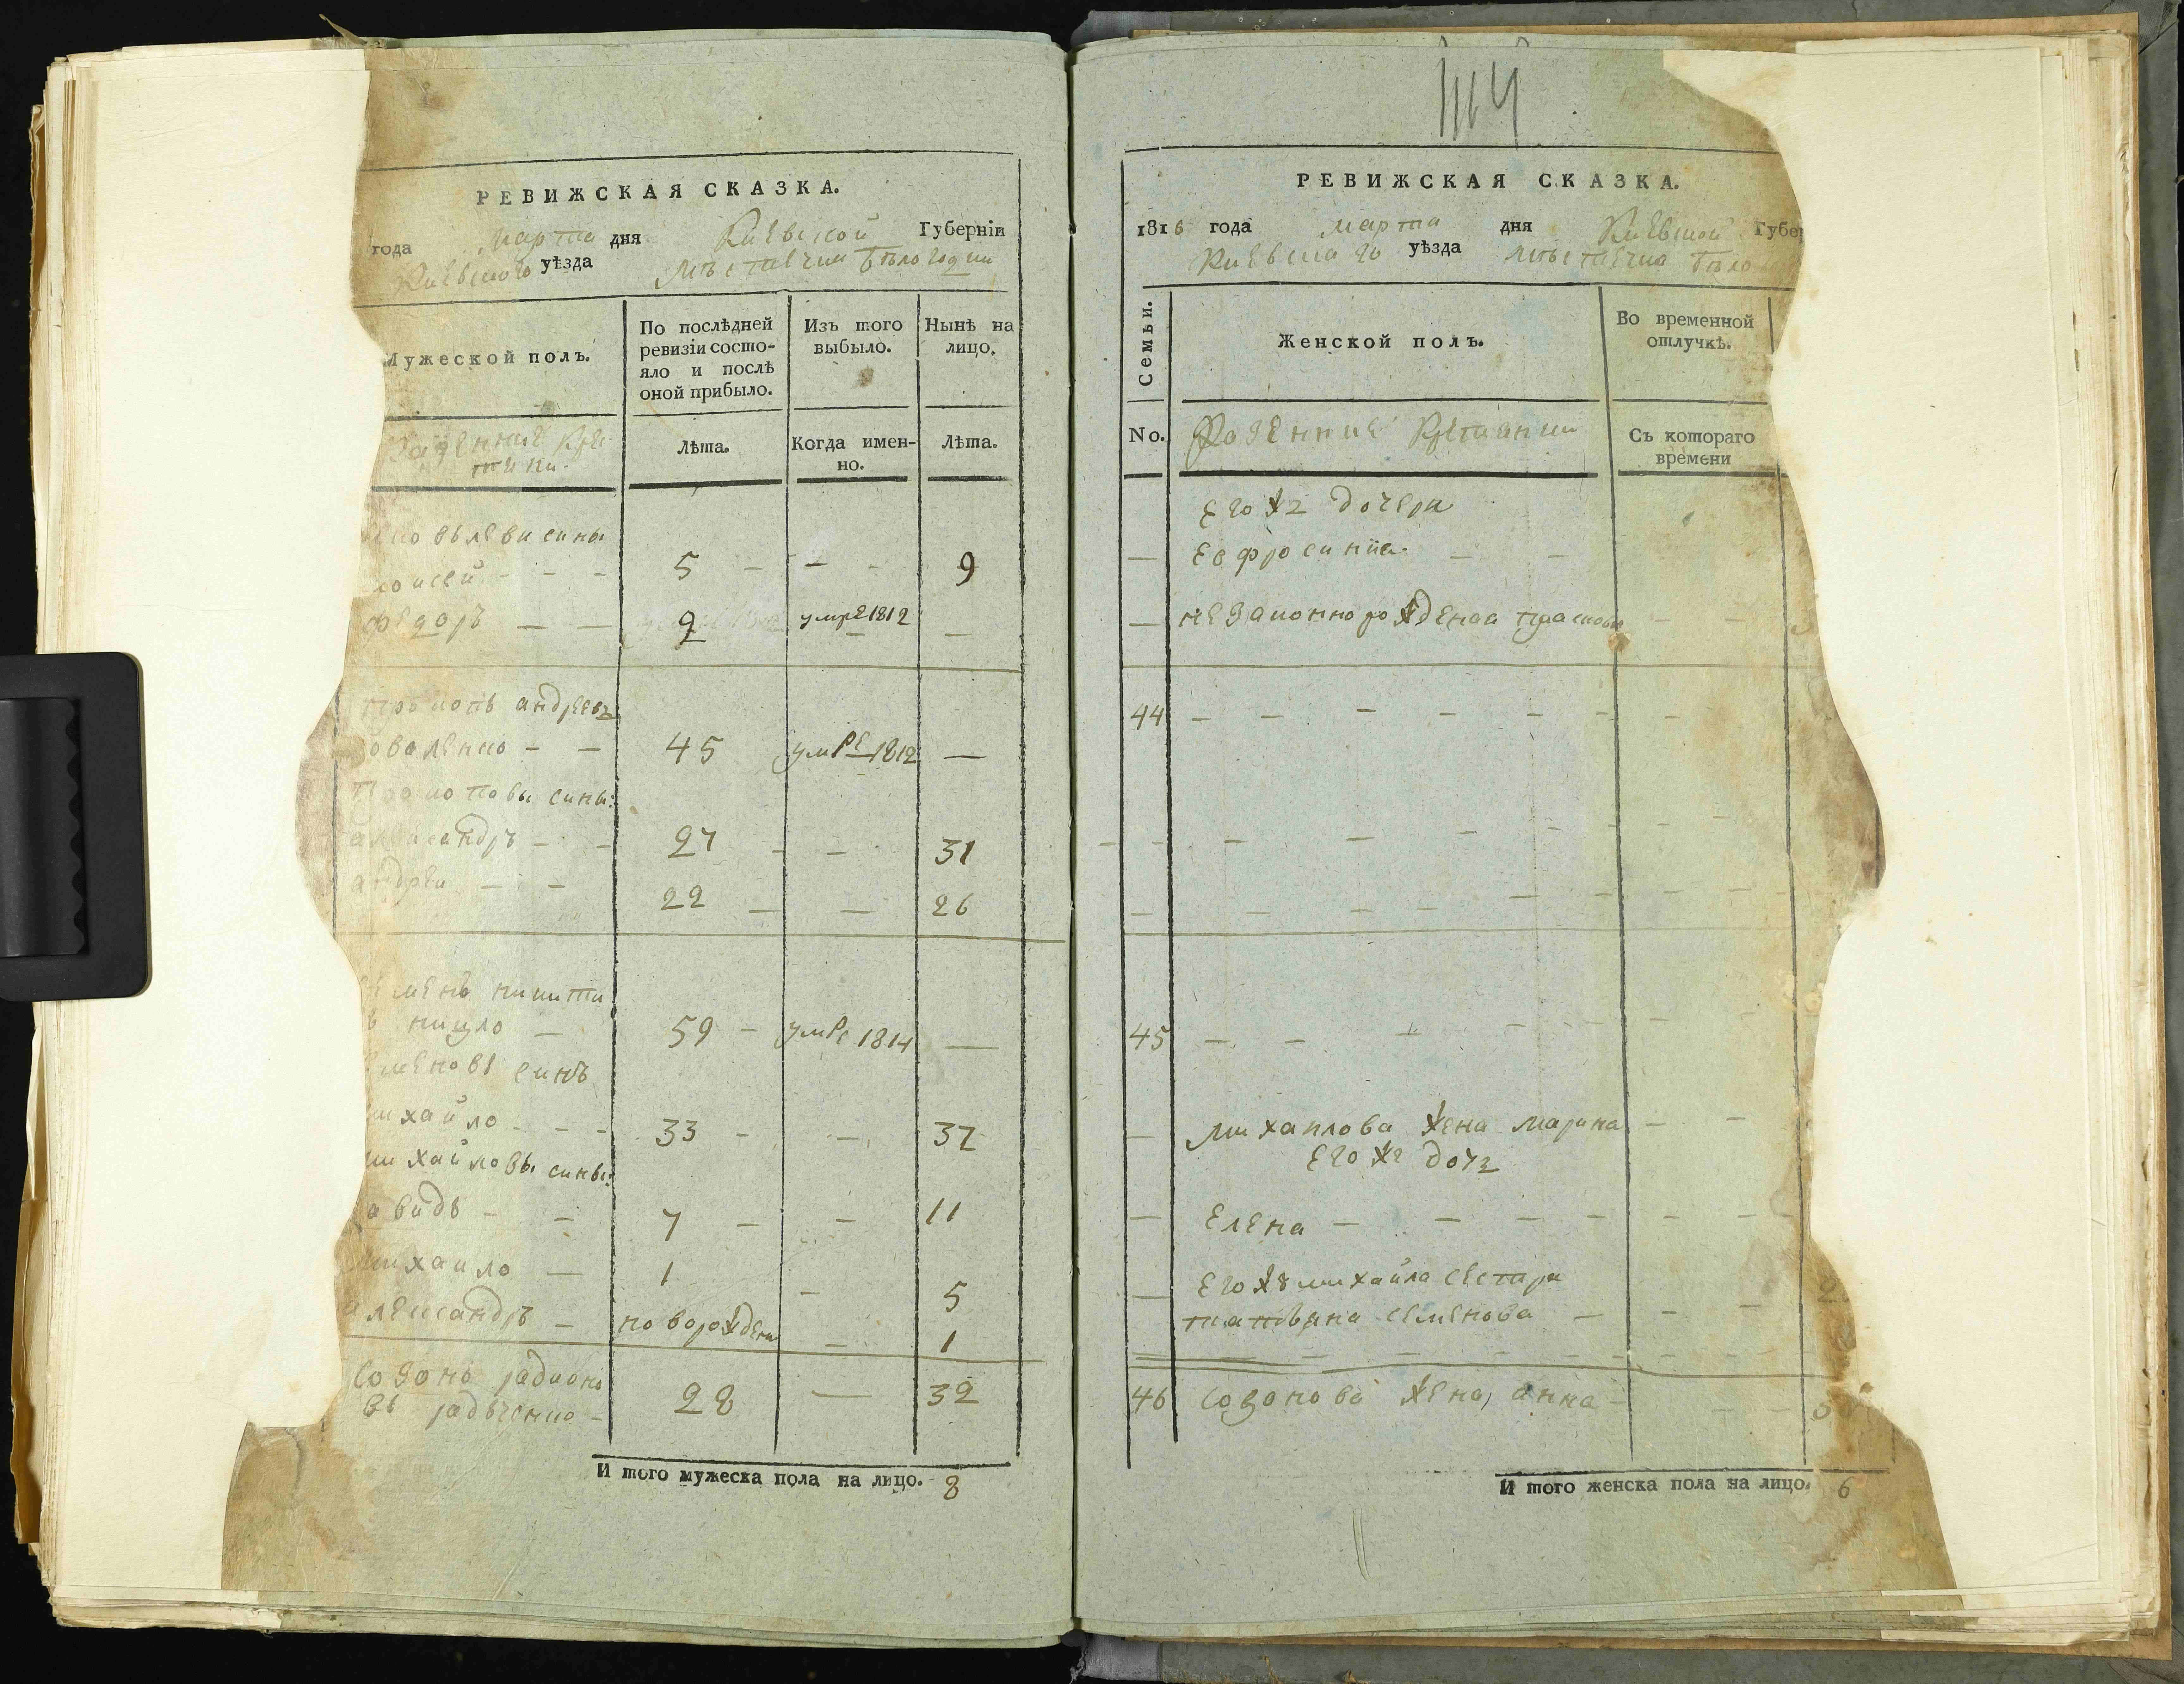 РЕВИЖСКАЯ СКАЗКА.
года марта дня Киевской Губерніи
Киевского уѣзда мѣстечка Бѣлогодки
Мужеской полъ.
По послѣдней ревизіи состо-
яло и послѣ
оной прибыло.
Изъ того
выбыло.
Нынѣ на
лицо.
Казенние Кре
Лѣта.
Когда имен-
но.
Лѣта.
сины
5 - - - 9
федоръ — — 2 умре 1812 —
андреевъ
оваленко - — 45 умре 1812 —
сины:
александръ - - 27 - - 31
андреи — - 22 — — 26
никити
59 - умре 1814 —
меновъ синъ
михайло - - - 33 - - 37
михайловы сины:
авидъ - - 7 — — 11
михаило — 1 - 5
александръ — новорожден - 1
Созонъ радионо
въ радченко - 28 — 32
И того мужеска пола на лицо. 8
РЕВИЖСКАЯ СКАЗКА.
1816 года марта дня Киевской Губер
Киевскаго уѣзда мѣстечка Бѣло
Семьи.
Женской полъ.
Во временной
отлучкѣ.
No.
Казенние Крѣстянки
Съ котораго
времени
Его жъ дочери
— Евфросиния - — —
— незаконнорожденая прасковя — —
44 — — — — — — —
45 — — — — — —
— михаилова жена марина — —
Его же дочъ
— Елена — — — — — —
— Его жъ михайла сестра
татьяна семенова — — —
46 созонова жена, анна - — —
И того женска пола на лицо. 6